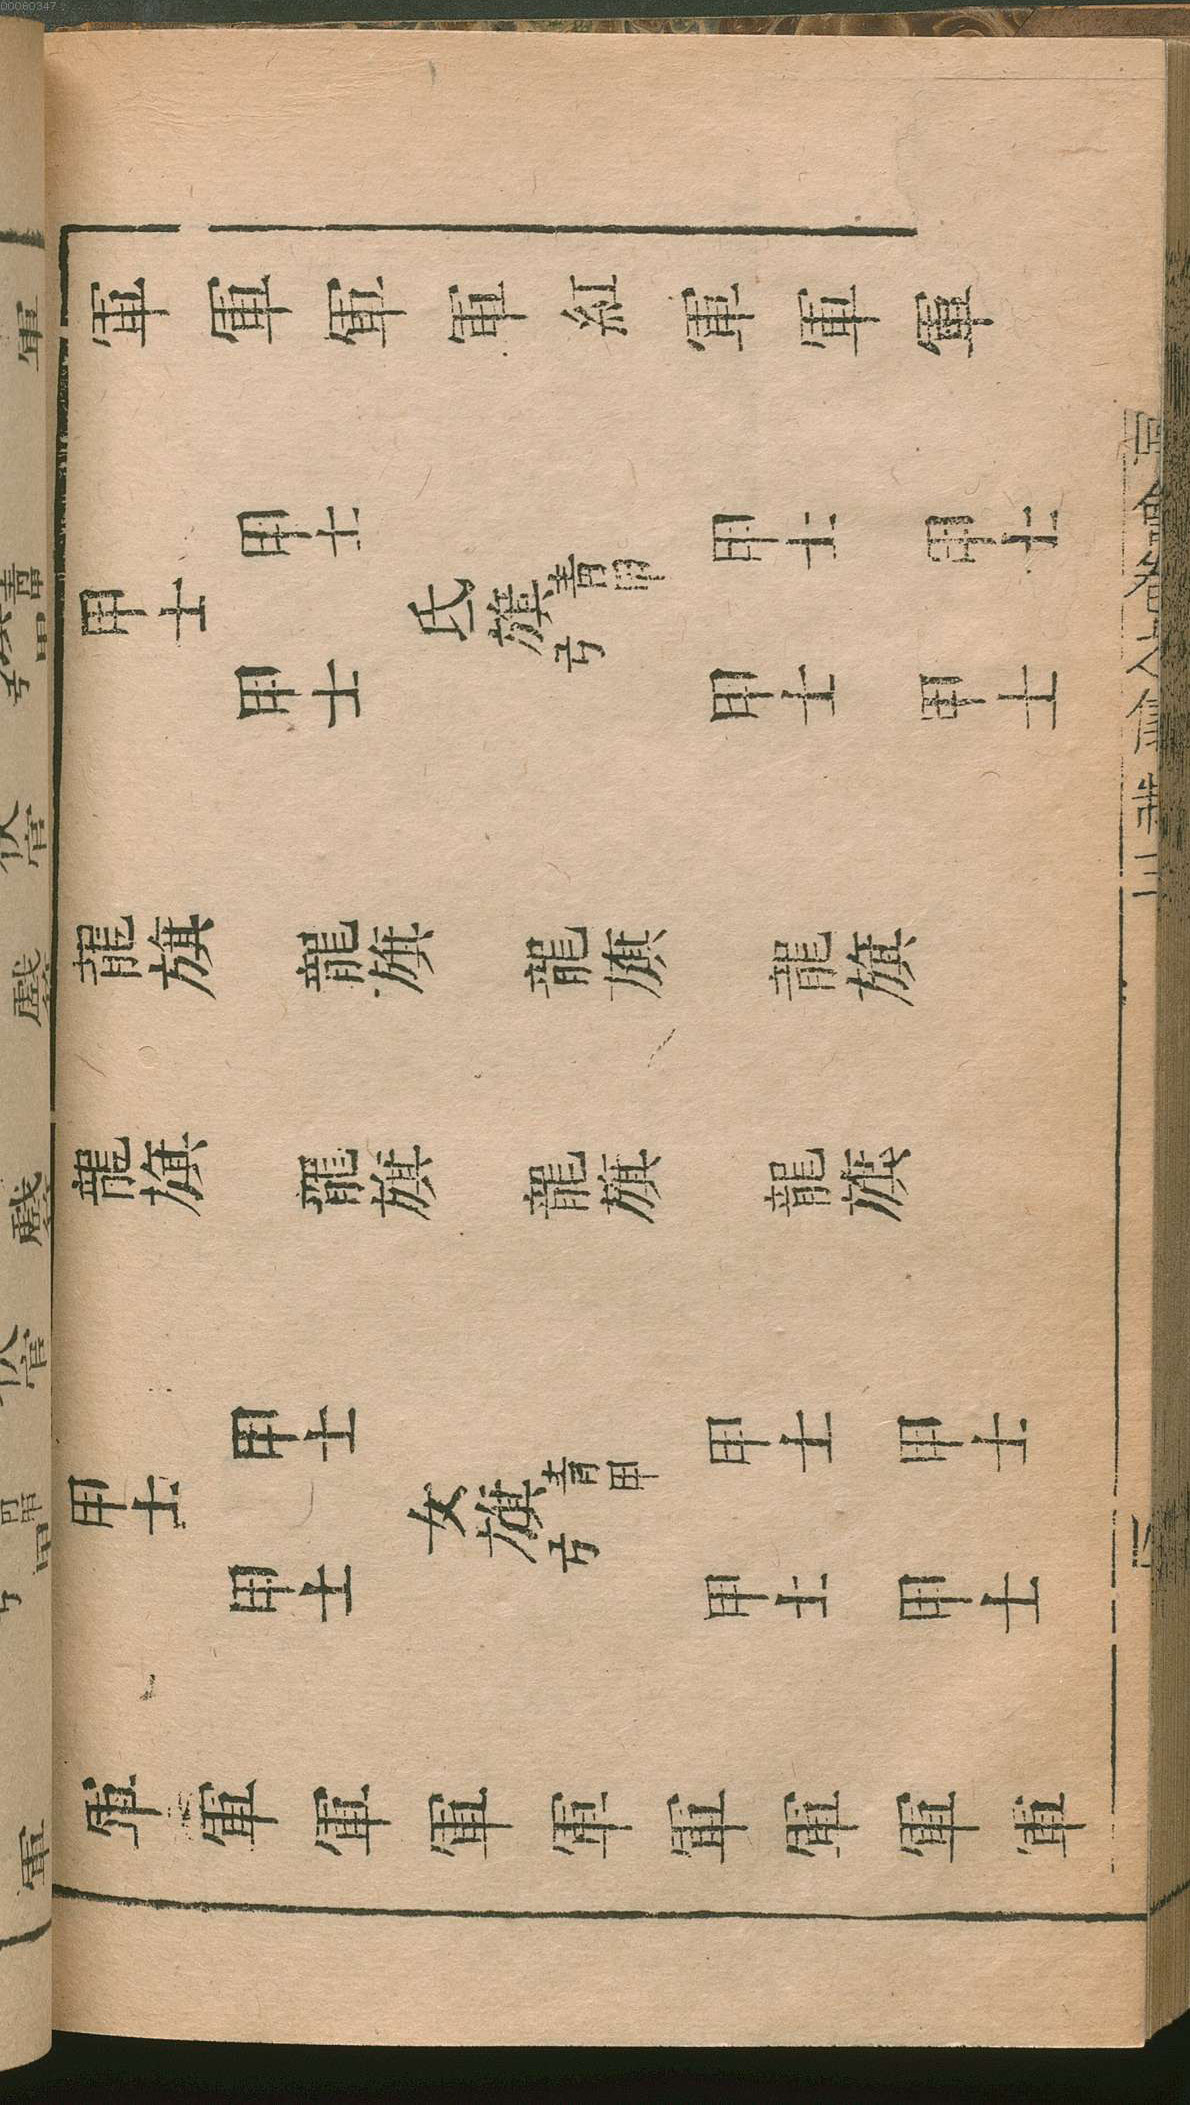 00060347
軍 軍 軍 軍 紅 軍 軍 軍
甲士 甲士 甲士
甲士 氐旗 青甲
弓
甲士 甲士 甲士
龍旗 龍旗 龍旗 龍旗
龍旗 龍旗 龍旗 龍旗
甲士 甲士 甲士
甲士 女旗 青甲
弓
甲士 甲士 甲士
軍 軍 軍 軍 軍 軍 軍 軍 軍